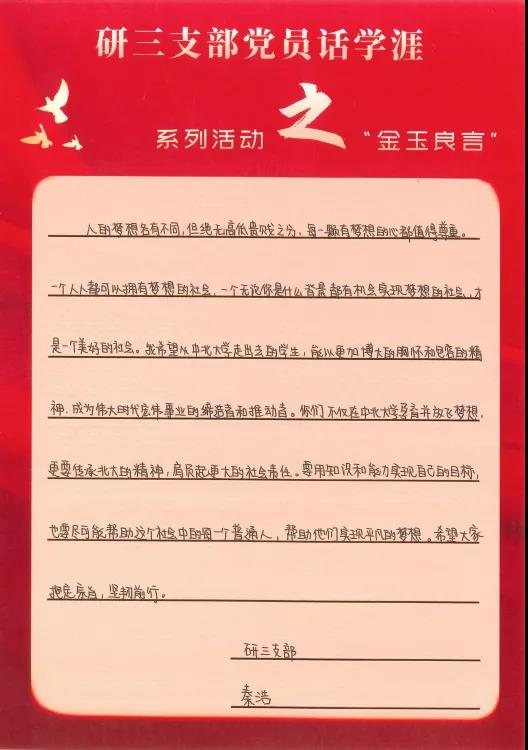 研三支部党员话学涯
系列活动 之 “金玉良言”
人的梦想各有不同,但绝无高低贵贱之分,每一颗有梦想的心都值得尊重。
一个人人都可以拥有梦想的社会,一个无论你是什么背景都有机会实现梦想的社会,才
是一个美好的社会。我希望从中北大学走出去的学生,能以更加博大的胸怀和包容的精
神,成为伟大时代宏伟事业的缔造者和推动者。你们不仅在中北大学孕育并放飞梦想,
更要传承北大的精神,肩负起更大的社会责任。要用知识和能力实现自己的目标,
也要尽可能帮助这个社会中的每一个普通人,帮助他们实现平凡的梦想。希望大家
把定宗旨,坚韧前行。
研三支部
秦浩